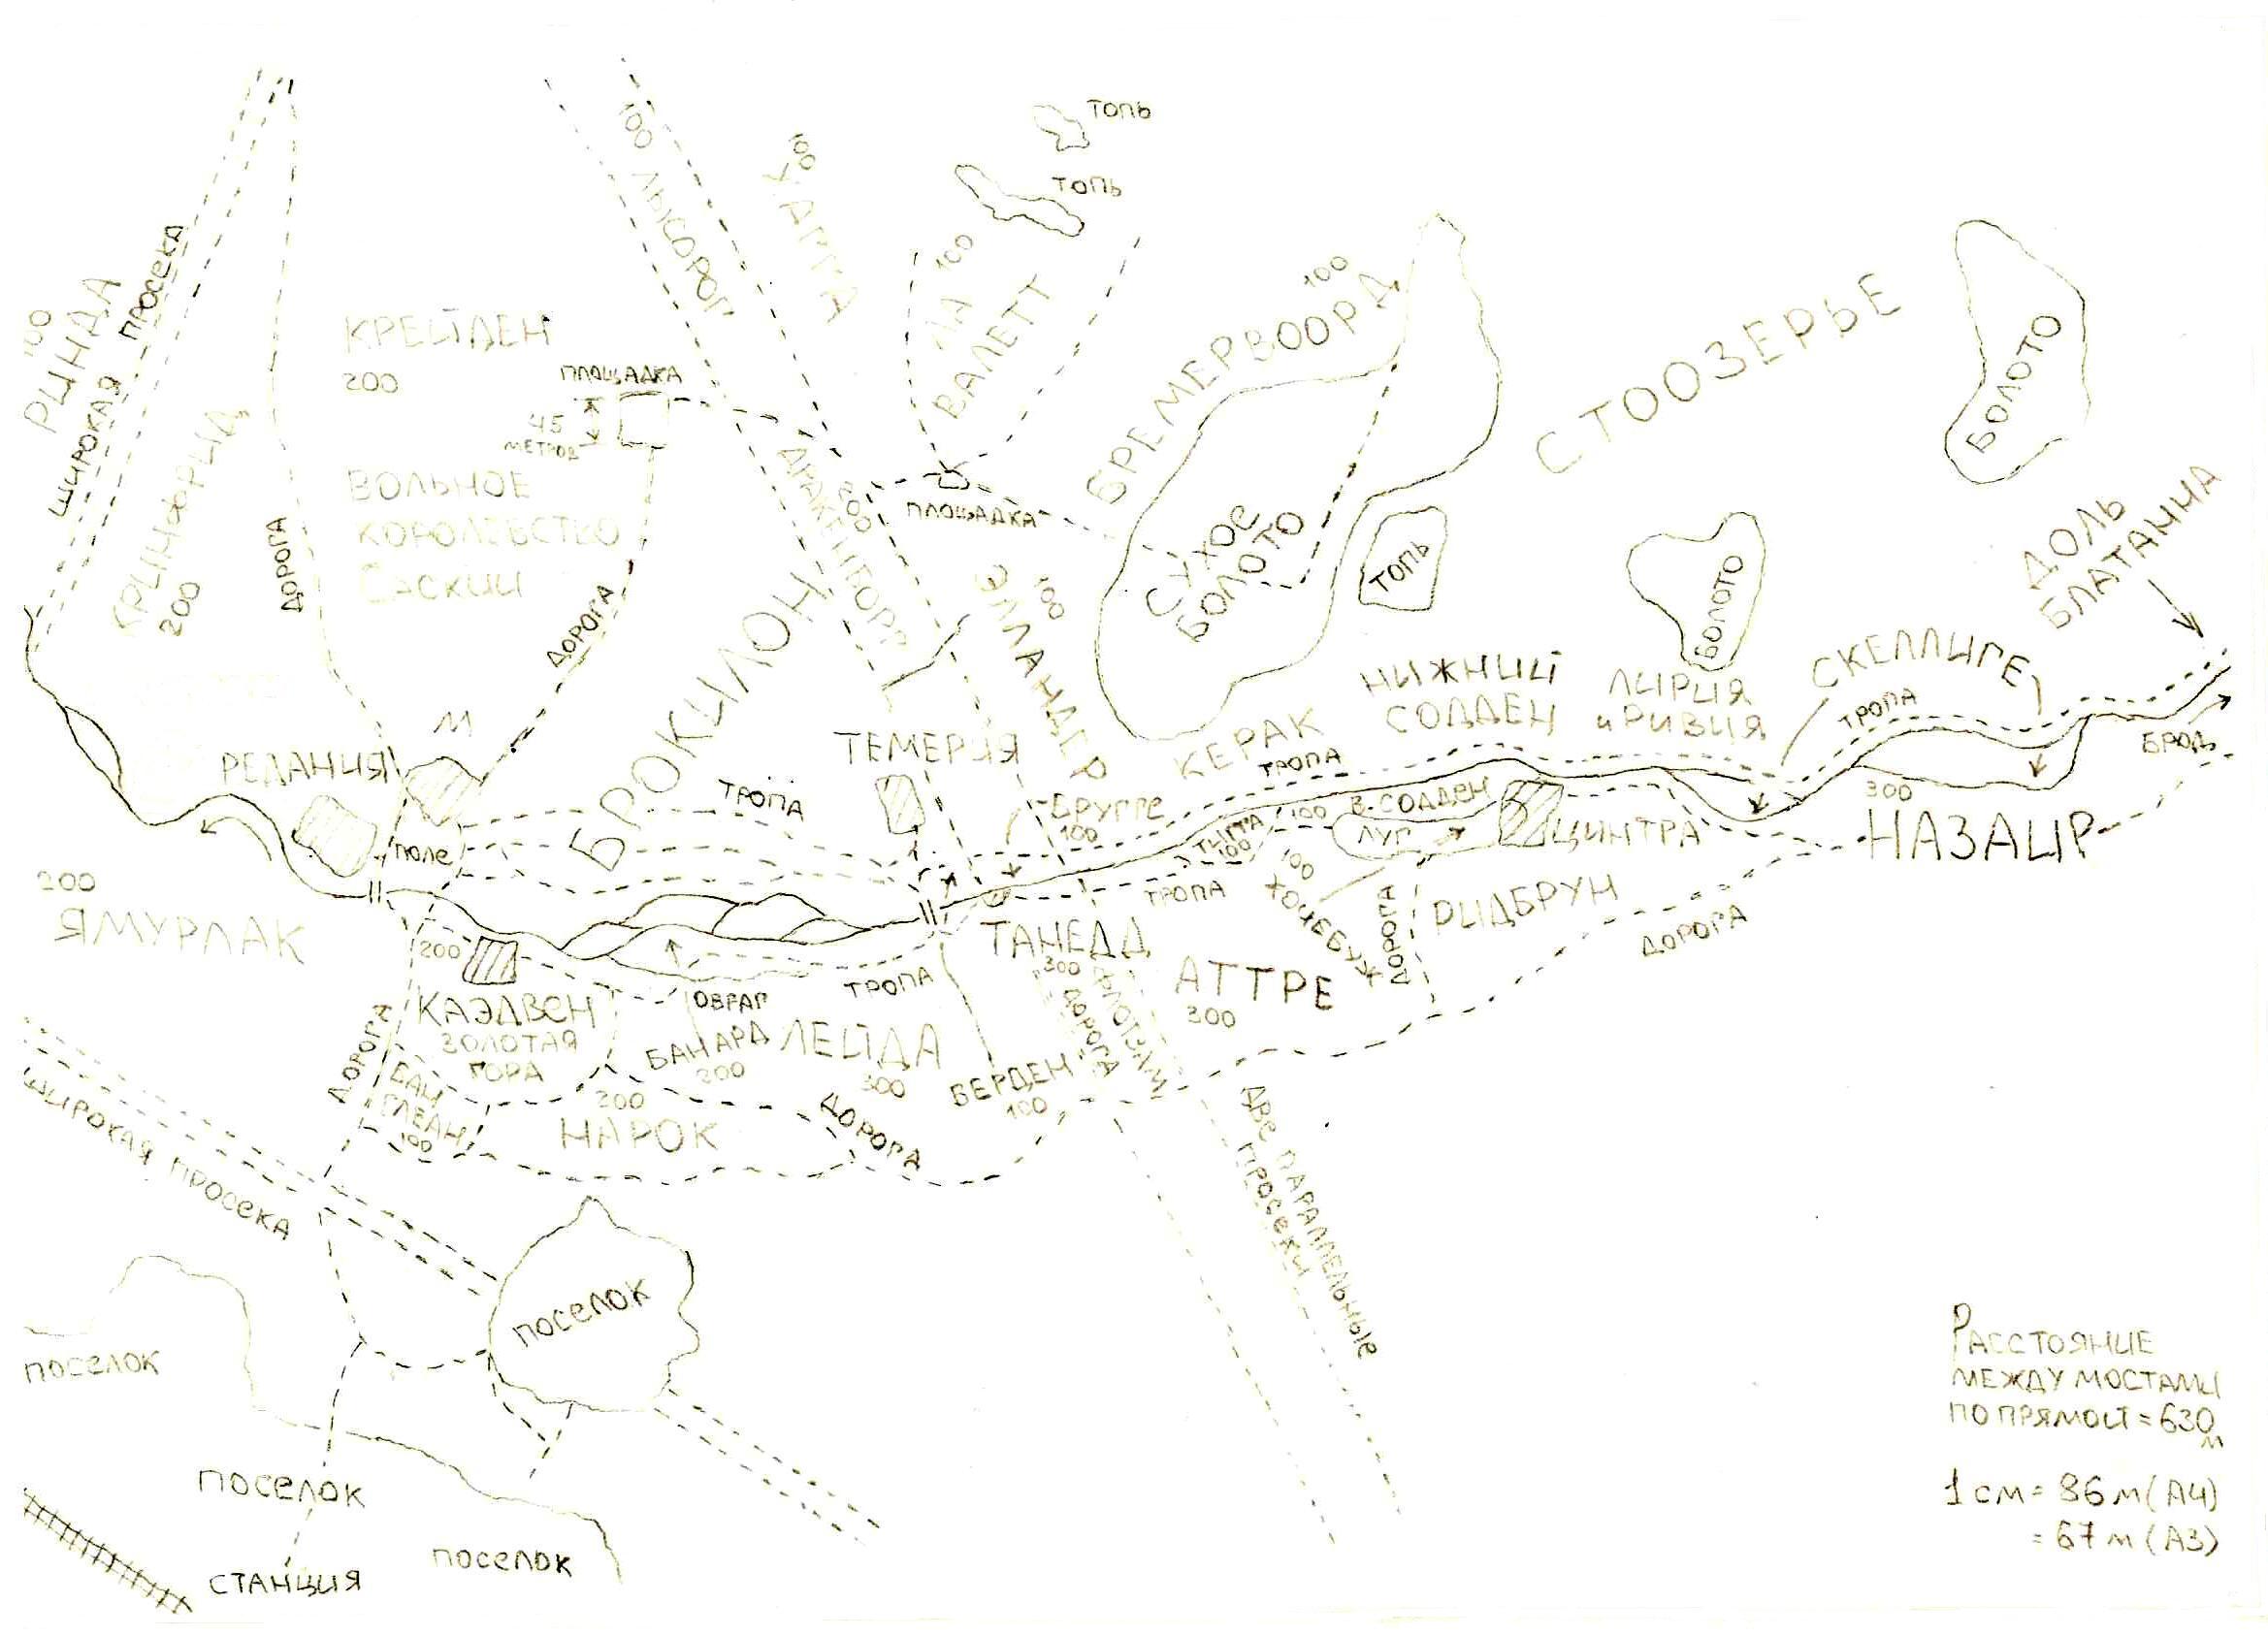 ТОПЬ
ТОПЬ
100 ЛЫСОРОГ
100
ХАГГА
ЛА 100
ВАЛЕТТ
100
РИНДА
ШИРОКАЯ ПРОСЕКА
КРЕЙДЕН
200
ПЛОЩАДКА
45
МЕТРОВ
БРЕМЕРВООРД
100
СТООЗЕРЬЕ
БОЛОТО
КРИНФРИД
200
ДОРОГА
ВОЛЬНОЕ
КОРОЛЕВСТВО
САСКИИ
ДОРОГА
200
ПЛОЩАДКА
СУХОЕ
БОЛОТО
ТОПЬ
БОЛОТО
ДОЛЬ
БЛАТАННА
БРОКИЛОН
ЭЛЛАНДЕР
100
РЕДАНИЯ
М
ТЕМЕРИЯ
КЕРАК
НИЖНИЙ
СОДДЕН
ЛИРИЯ
И РИВИЯ
СКЕЛЛИГЕ
ТРОПА
ТРОПА
ТРОПА
БРОД
ПОЛЕ
БРУГГЕ
100
100
100
В. СОДДЕН
ЛУГ
ЦИНТРА
300
НАЗАИР
ТРОПА
100
ДОРОГА
РИДБРУН
ДОРОГА
200
ЯМУРЛАК
200
КАЭДВЕН
ЗОЛОТАЯ
ГОРА
ОВРАГ
ТРОПА
ТАНЕДД
300
ДОРОГА
АТТРЕ
300
БАНАРД
200
ЛЕЙДА
300
БЕРДЕН
100
ДОРОГА
БАН
ГЛЕАН
100
200
НАРОК
ДОРОГА
ШИРОКАЯ ПРОСЕКА
ДВЕ ПАРАЛЛЕЛЬНЫЕ
ПРОСЕКИ
ПОСЕЛОК
ПОСЕЛОК
ПОСЕЛОК
ПОСЕЛОК
СТАНЦИЯ
РАССТОЯНИЕ
МЕЖДУ МОСТАМИ
ПО ПРЯМОЙ = 630
М
1 СМ = 96 М (А4)
= 67 М (А3)